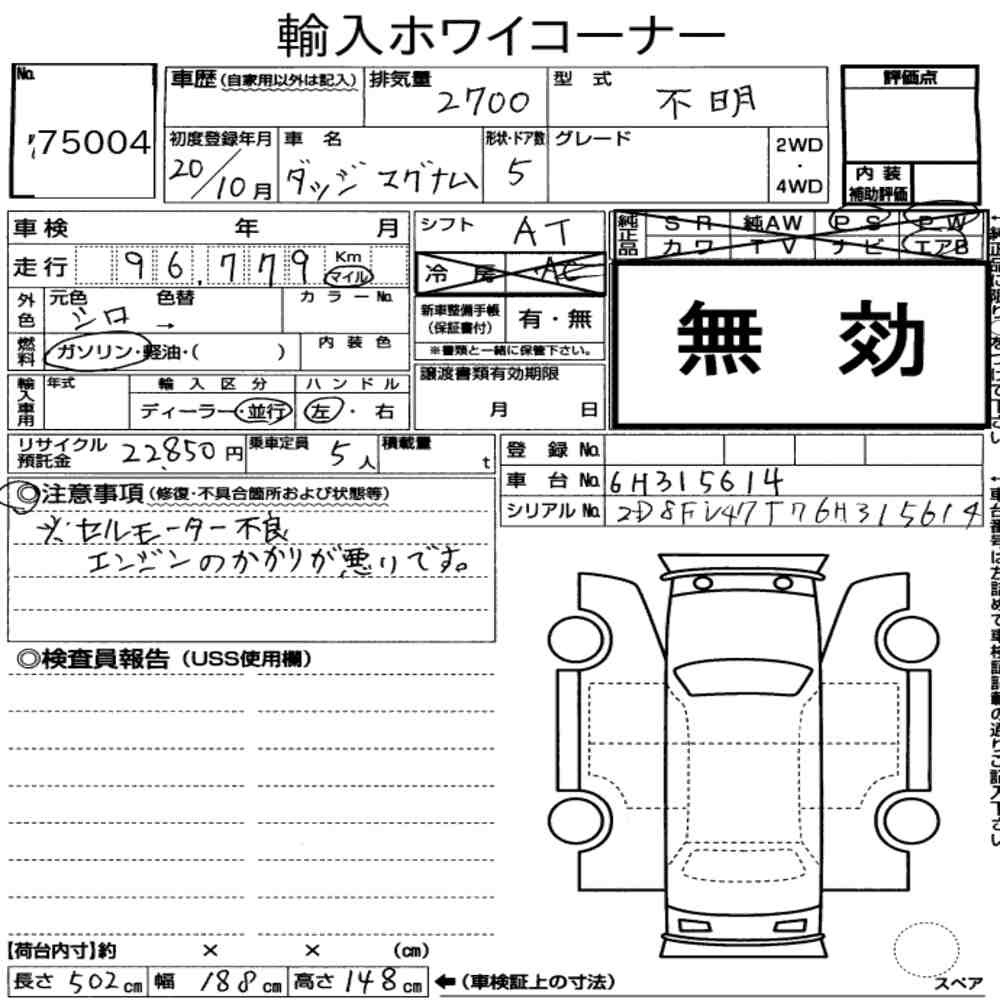 輸入ホワイコーナー
No.
75004
車歴(自家用以外は記入)
排気量
2700
型 式
不明
評価点
初度登録年月
20/10月
車 名
ダッジ マグナム
形状・ドア数
5
グレード
2WD
・
4WD
内 装
補助評価
車検 年 月
走行 96,779 Km
マイル
外色
元色
シロ
色替
→
カラーNo.
燃料
ガソリン・軽油・( )
内 装 色
輸入車用
年式
輸 入 区 分
ディーラー・並行
ハ ン ド ル
左 ・ 右
シフト
AT
冷 房
AC
新車整備手帳
(保証書付)
有・無
※書類と一緒に保管下さい。
譲渡書類有効期限
月 日
純正品
SR 純AW PS PW
カワ TV ナビ エアB
無 効
リサイクル
預託金
22,850円
乗車定員
5人
積載量
t
登 録 No.
車 台 No.
6H315614
シリアル No.
2D8FV47T76H315614
◎注意事項(修復・不具合箇所および状態等)
※セルモーター不良
エンジンのかかりが悪いです。
◎検査員報告(USS使用欄)
【荷台内寸】約 × × (cm)
長さ 502cm 幅 188cm 高さ 148cm
←(車検証上の寸法)
スペア
←車台番号は左詰めで車検証記載の通りご記入下さい